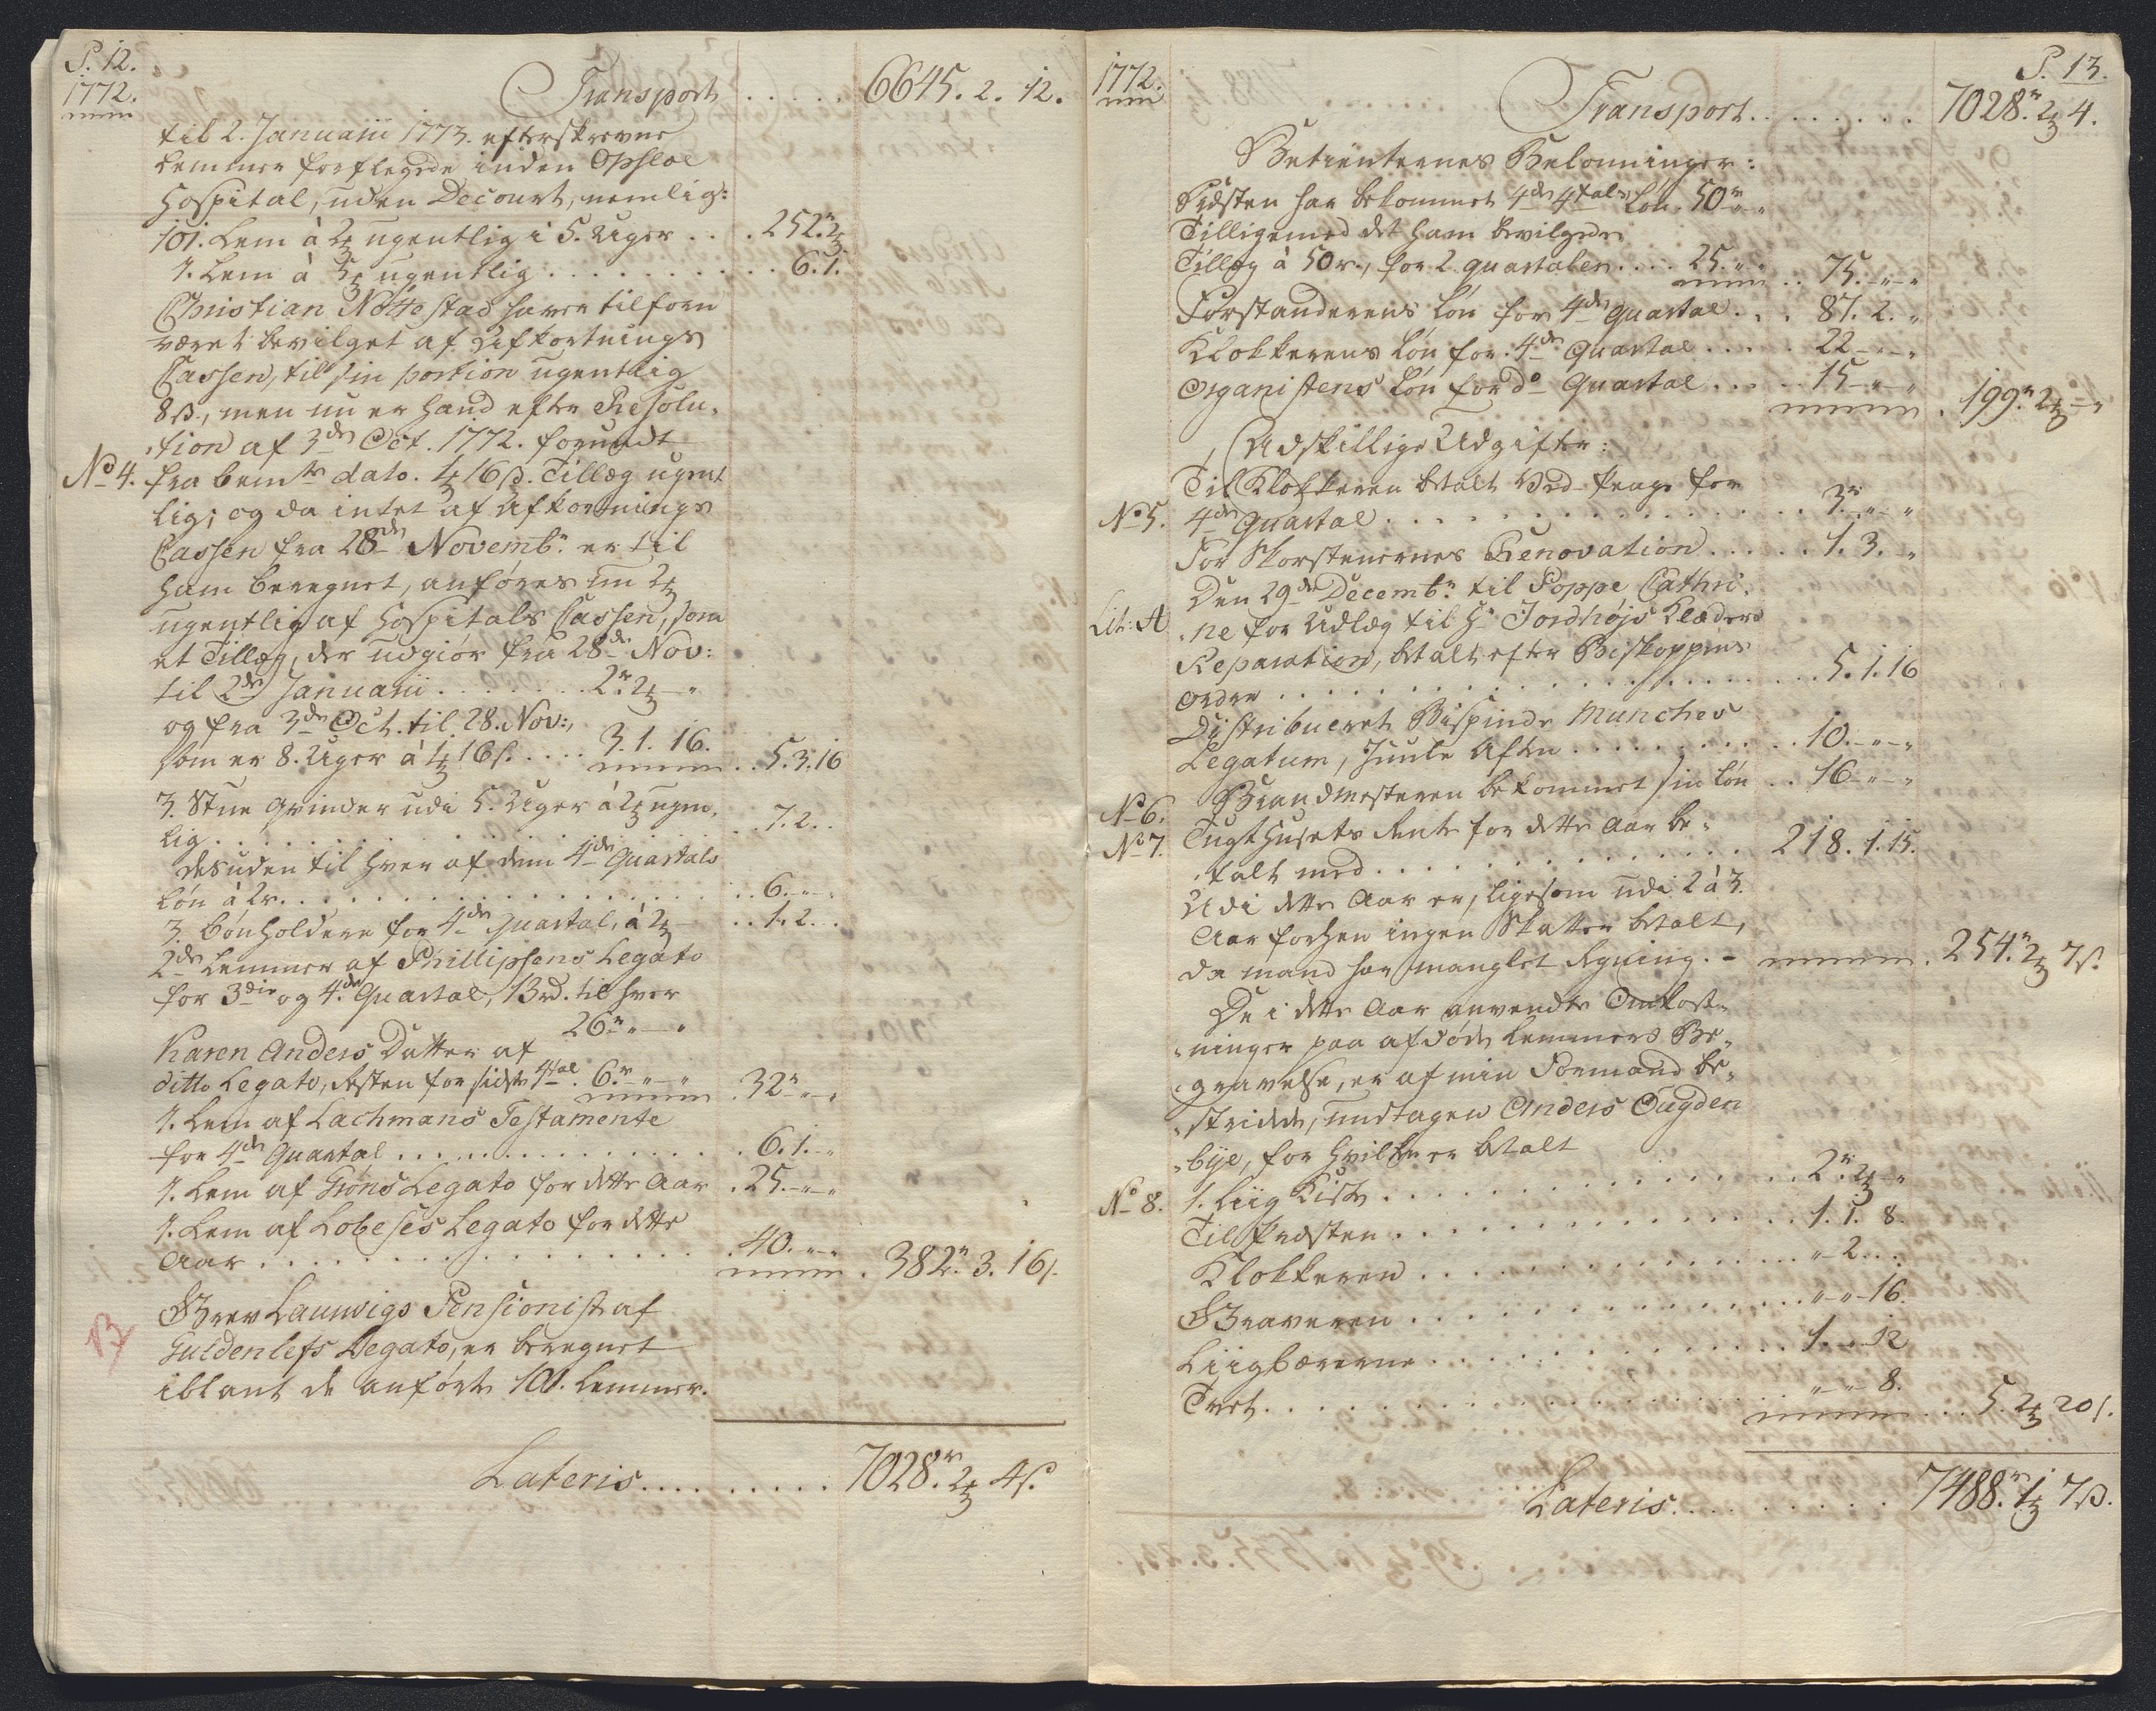 P. 12.
1772.
Transport ..... 6645. 2. 12.
til 2. Januarii 1773. efterskrevne
Lemmer forflegede inden Opsloe
Hospital, uden Decourt, nemlig:
101. Lem à 2 ugentlig i 5. Uger ... 252. 2
1. Lem à 5 ugentlig .......... 6. 1.
Christian Nøttestad haver tilforn
været bevilget af Afkortnings
Cassen, til sin portion ugentlig
8 ß., men nu er hand efter Resolu-
tion af 3de Oct. 1772. forundt
No 4. fra bemte dato. 1 16 ß. Tillæg ugent
lig; og da intet af Afkortnings
Cassen fra 28de Novembr. er til
ham beregnet, anføres nu 2
ugentlig af Hospitals Cassen, som
et Tillæg, der udgiør fra 28de Nov:
til 2de Januarii ....... 2r. 2 - "
og fra 3de Oct. til 28. Nov:,
som er 8. Uger à 1 16 s. .... 3. 1. 16. .. 5. 3. 16
3. Stue Qvinder udi 5. Uger à 2 ugent-
lig .......... 7. 2. .
desuden til hver af dem 4de Quartals
Løn à 2r. .......... 6. " - "
3. Bønholdere for 4de Quartal, à 2 - .. 1. 2. ..
2de Lemmer af Phillipsens Legato
for 3die og 4de Quartal, 13rd. til hver
26r " - "
Karen Anders Datter af
ditto Legato, Resten for sidste 4tal. 6r. " - " . 32r - " - "
1. Lem af Lachmans Testamente
for 4de Quartal .......... 6. 1. - "
1. Lem af Grøns Legato for dette Aar . 25. - " - "
1. Lem af Lobeses Legato for dette
Aar .......... 40. " - " . 382r. 3. 16 s.
Grev Lauwigs Pensionist af
Guldenlefs Legato, er beregnet
iblant de anførte 101. Lemmer.
Lateris .......... 7028r. 2 4 s.
P. 13.
1772.
Transport ........ 7028r. 2 4.
Betienternes Belønninger:
Præsten har bekommet 4de 4tals Løn. 50r " "
Tilligemed det ham bevilgede
Tillæg à 50r., for 2 quartaler .... 25. " " .. 75. - " - "
Forstanderens Løn for 4de Quartal ... 87. 2. "
Klokkerens Løn for 4de Quartal ..... 22 - " - "
Organistens Løn for do Quartal ..... 15 - " - " . 199r. 2 - "
Adskillige Udgifter:
Til Klokkeren betalt Ved-Penge for
No 5. 4de Quartal .......... 3r. " - "
For Skorsteenernes Renovation ..... 1. 3. "
Den 29de Decembr. til Poppe Cathri-
Lit: A ne for Udlæg til Hr Jordhøjs Klæders
Reparation, betalt efter Biskoppens
Ordre .......... 5. 1. 16
Distribueret Bispinde Munches
Legatum, Juule Aften .......... 10. - " - "
No 6. Brandmesteren bekommet sin Løn .. 16 - " - "
No 7. Tugthusets Rente for dette Aar be-
talt med .......... 218. 1. 15.
Udi dette Aar er, ligesom udi 2 à 3.
Aar forhen ingen Skatter betalt,
da mand har manglet Regning. - 254r. 2 7 s.
De i dette Aar anvendte Omkost-
ninger paa afdøde Lemmers Be-
gravelse, er af min Formand be-
stridet, undtagen Anders Øugden
bye, for hvilken er betalt
No 8. 1. Liig Kiste .......... 2r. 2 - "
Til Præsten .......... 1. 1. 8.
Klokkeren .......... " - 2. ..
Graveren .......... " - " - 16.
Liigbærerne .......... 1. - " 12
Tret .......... " - " 8. ... 5. 2 20 s.
Lateris ......... 7488r. 1 7 ß.